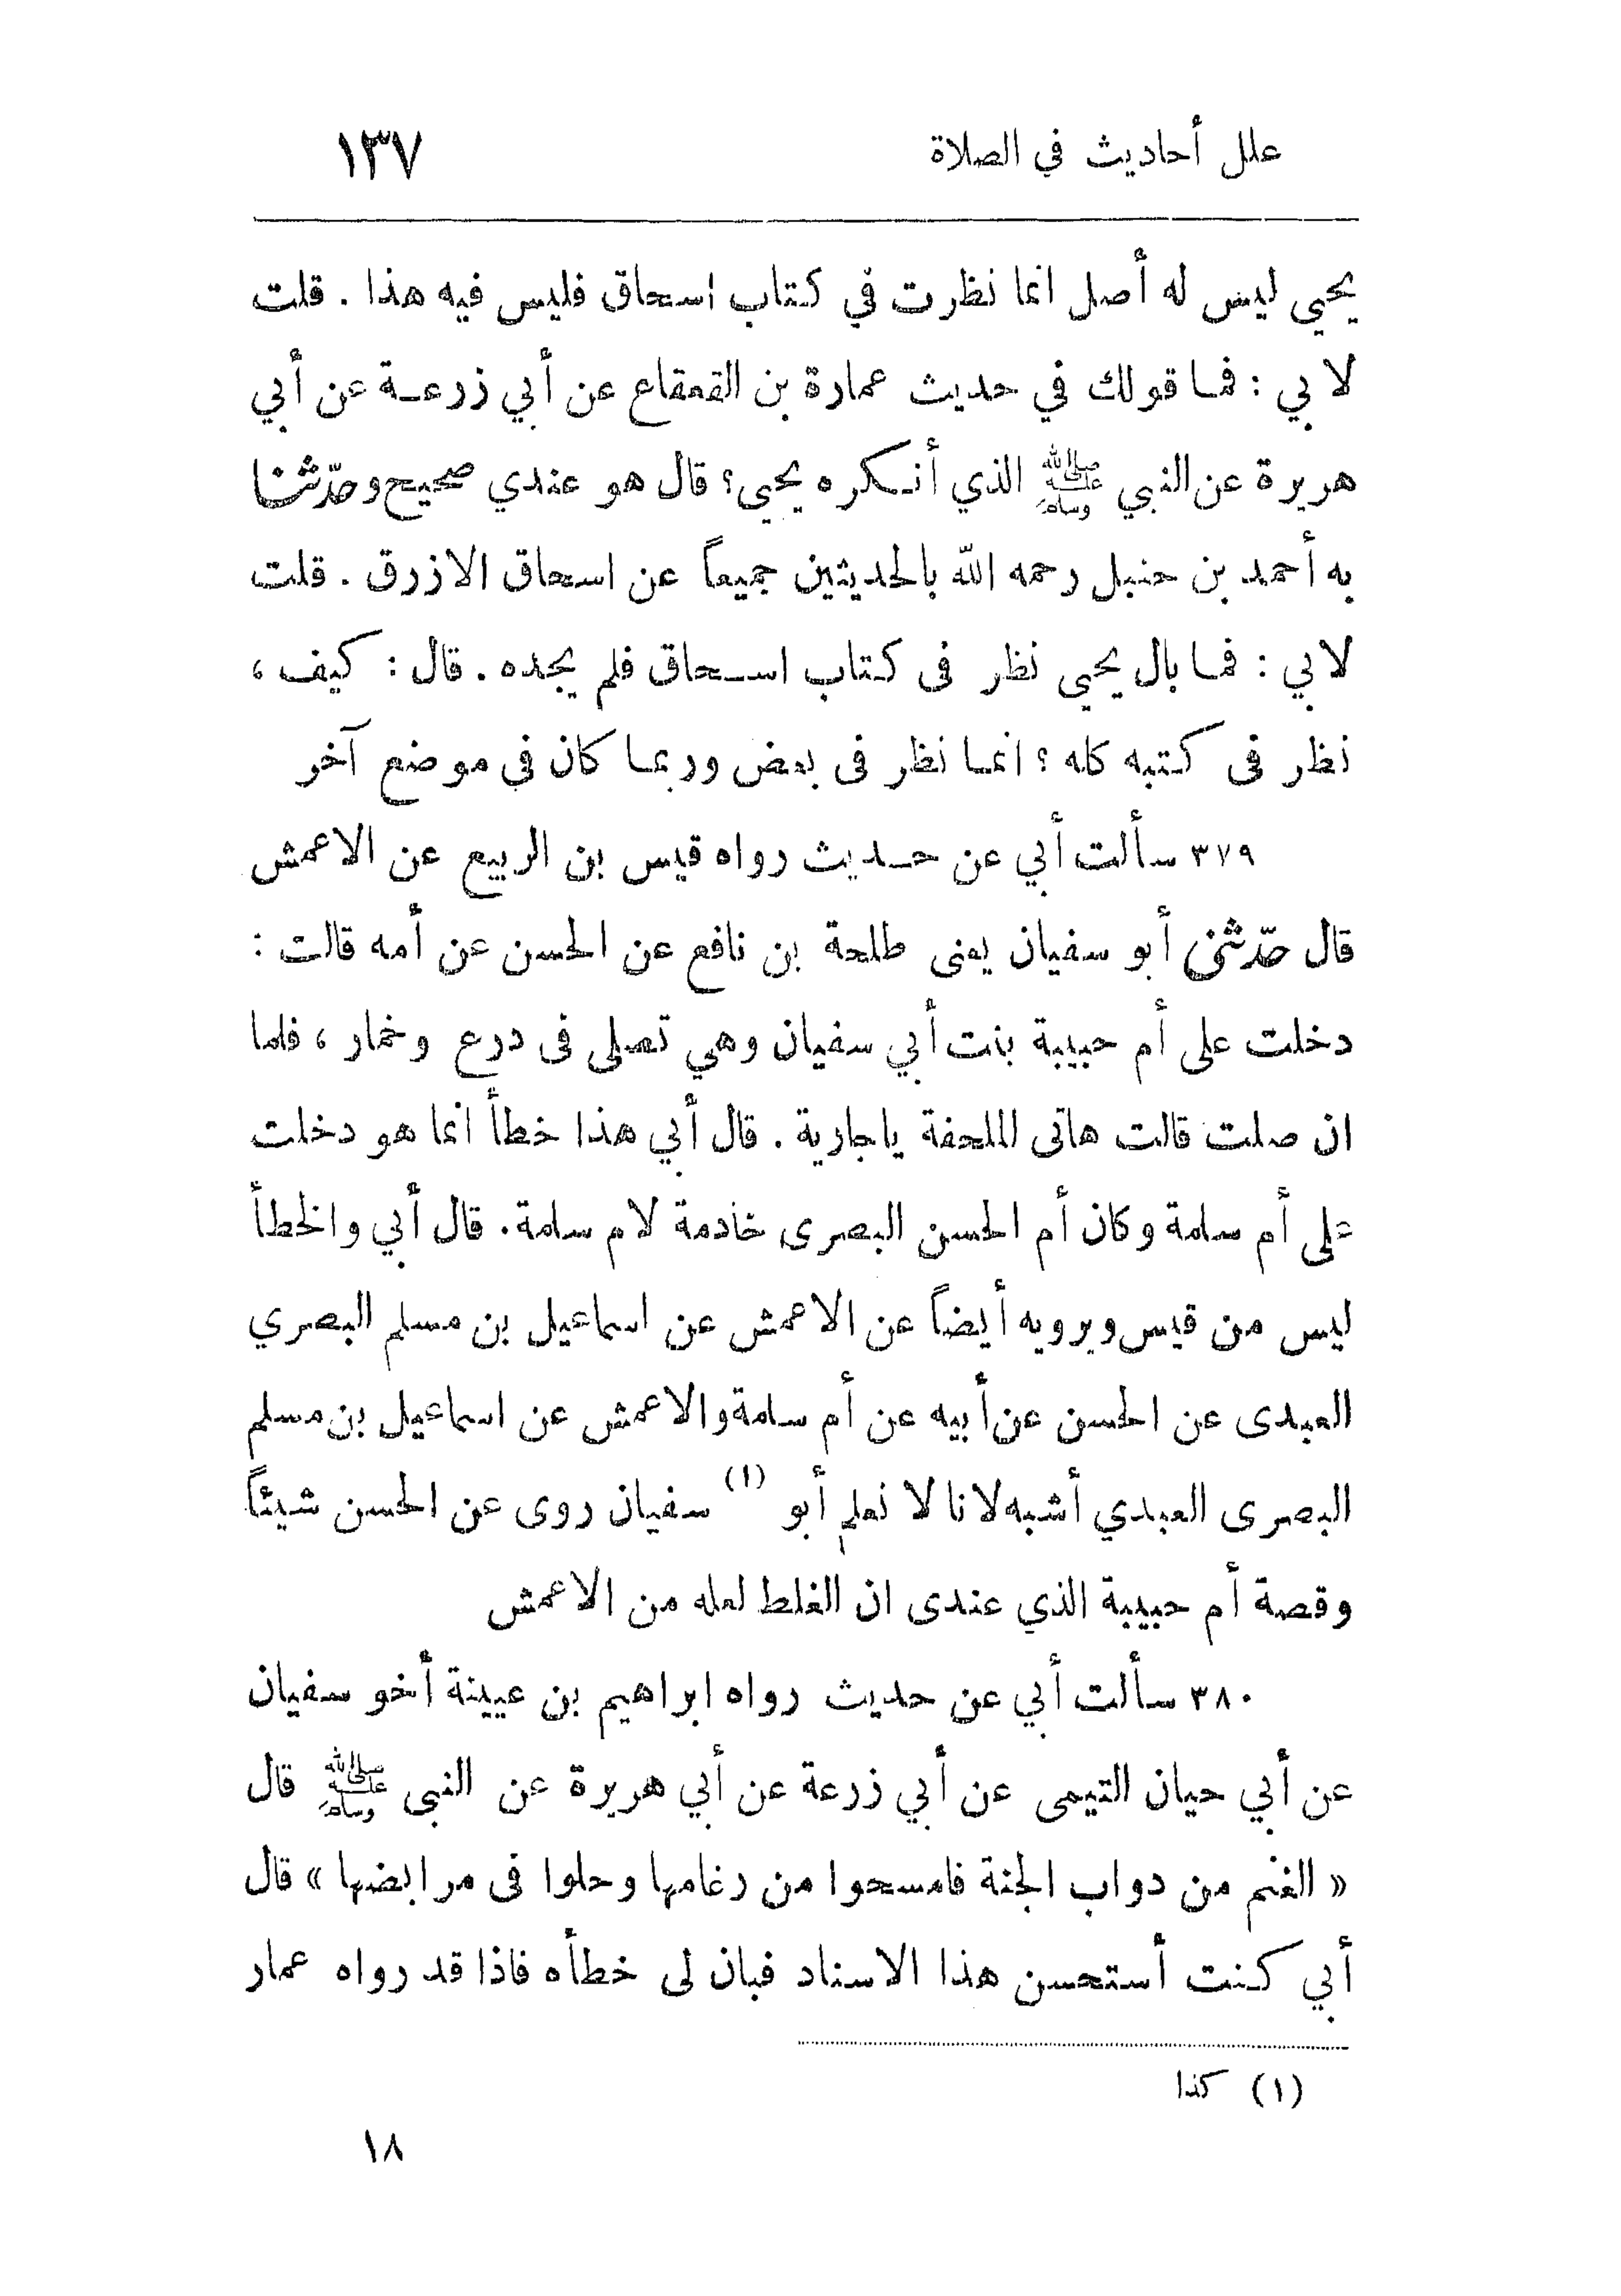 علل أحاديث في الصلاة ١٣٧
يحيى ليس له أصل انما نظرت في كتاب اسحاق فليس فيه هذا . قلت
لابي : فما قولك في حديث عمارة بن القعقاع عن أبي زرعة عن أبي
هريرة عن النبي ﷺ الذي أنكره يحيى؟ قال هو عندي صحيح وحدّثنا
به أحمد بن حنبل رحمه الله بالحديثين جميعاً عن اسحاق الازرق . قلت
لابي : فما بال يحيى نظر فى كتاب اسحاق فلم يجده . قال : كيف ،
نظر فى كتبه كله ؟ انما نظر فى بعض وربما كان فى موضع آخر
٣٧٩ سألت أبي عن حديث رواه قيس بن الربيع عن الاعمش
قال حدّثنى أبو سفيان يعنى طلحة بن نافع عن الحسن عن أمه قالت :
دخلت على أم حبيبة بنت أبي سفيان وهي تصلى فى درع وخمار ، فلما
ان صلت قالت هاتى الملحفة ياجارية . قال أبي هذا خطأ انما هو دخلت
على أم سلمة وكان أم الحسن البصرى خادمة لام سلمة . قال أبي والخطأ
ليس من قيس ويرويه أيضاً عن الاعمش عن اسماعيل بن مسلم البصري
العبدى عن الحسن عن أبيه عن أم سلمة والاعمش عن اسماعيل بن مسلم
البصرى العبدي أشبه لانا لا نعلم أبو (١) سفيان روى عن الحسن شيئاً
وقصة أم حبيبة الذي عندى ان الغلط لعله من الاعمش
٣٨٠ سألت أبي عن حديث رواه ابراهيم بن عيينة أخو سفيان
عن أبي حيان التيمى عن أبي زرعة عن أبي هريرة عن النبى ﷺ قال
« الغنم من دواب الجنة فامسحوا من رغامها وحلوا فى مرابضها » قال
أبي كنت أستحسن هذا الاسناد فبان لى خطأه فاذا قد رواه عمار
(١) كذا
١٨